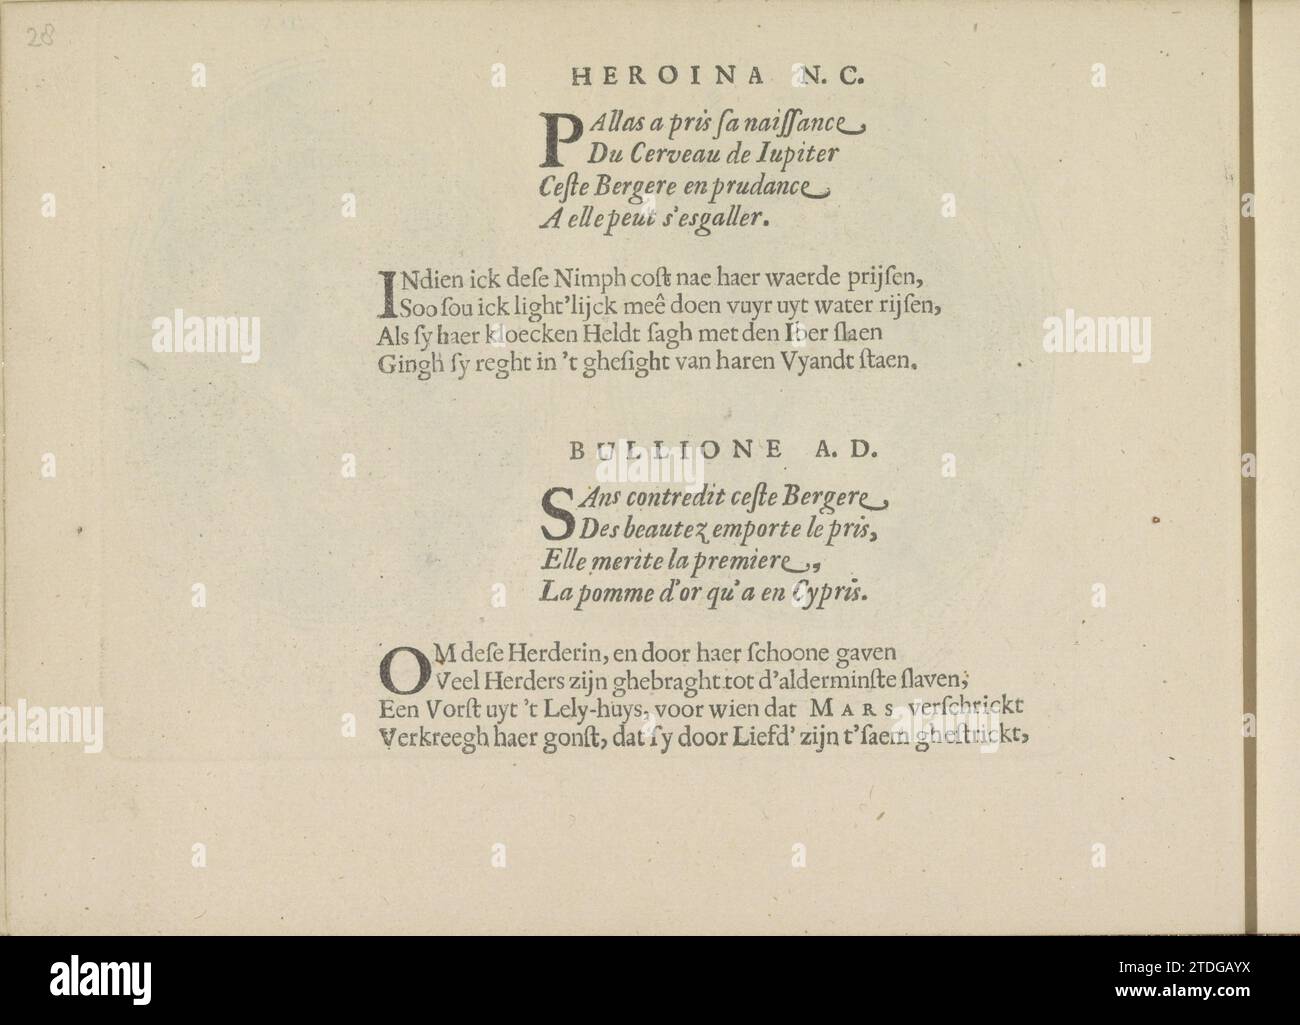 28
HEROINA N. C.
PAllas a pris ſa naiſſance
Du Cerveau de Iupiter
Ceſte Bergere en prudance
A elle peut s'esgaller.
INdien ick deſe Nimph coſt nae haer waerde prijſen,
Soo ſou ick light'lijck meê doen vuyr uyt water rijſen,
Als ſy haer kloecken Heldt ſagh met den Iber ſlaen
Gingh ſy reght in 't gheſight van haren Vyandt ſtaen.
BULLIONE A. D.
SAns contredit ceſte Bergere,
Des beautez emporte le pris,
Elle merite la premiere,
La pomme d'or qu'a en Cypris.
OM deſe Herderin, en door haer ſchoone gaven
Veel Herders zijn ghebraght tot d'alderminſte ſlaven,
Een Vorſt uyt 't Lely-huys, voor wien dat MARS verſchrickt
Verkreegh haer gonſt, dat ſy door Liefd' zijn t'ſaem gheſtrickt,
alamy
Image ID: 2TDGAYX
www.alamy.com